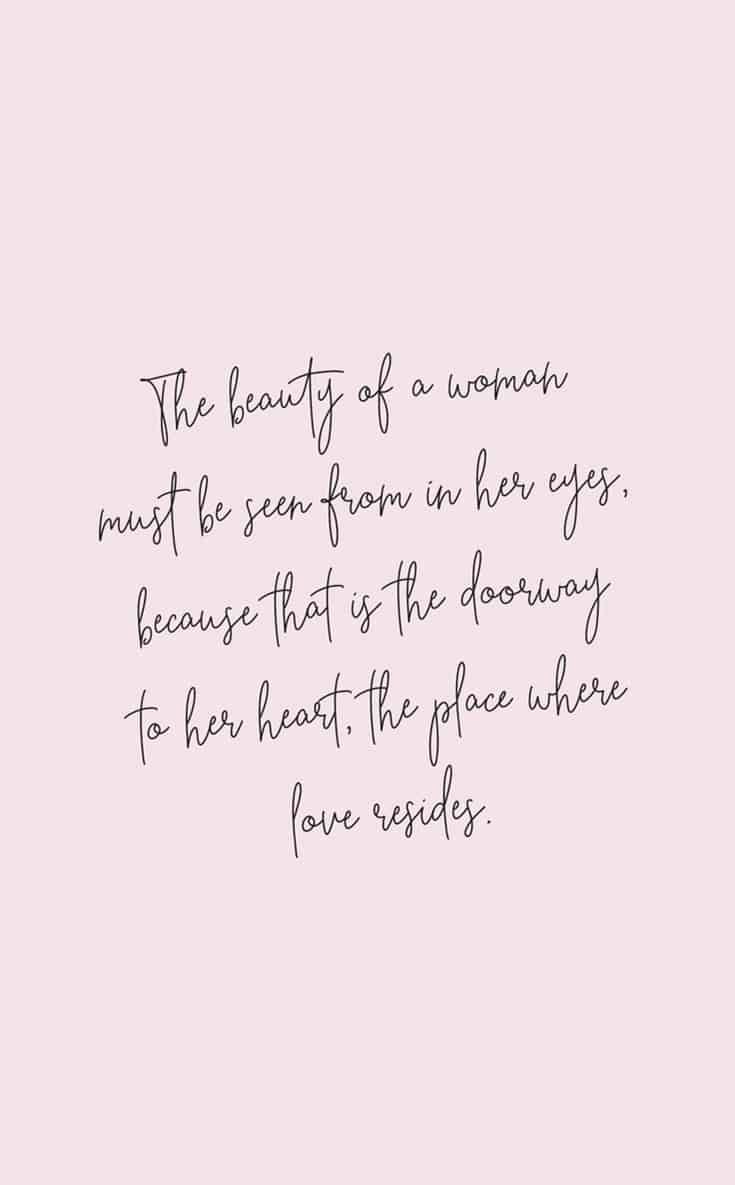 The beauty of a woman
must be seen from in her eyes,
because that is the doorway
to her heart, the place where
love resides.